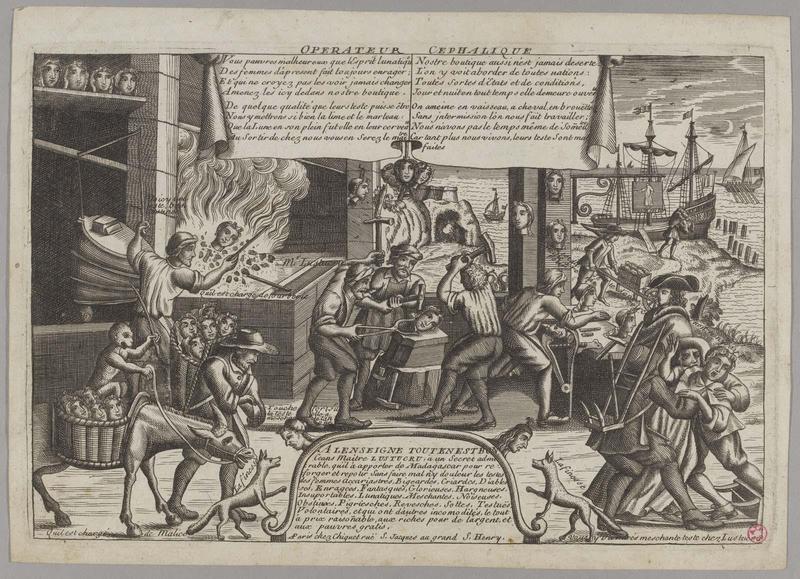 OPERATEUR CEPHALIQUE
Vous pauvres malheureux que l'esprit lunatique
Des femmes d'apresent fait toujours enrager;
Et qui ne croyez pas les voir jamais changer
Amenez les icy dedens nostre boutique.
De quelque qualité que leurs teste puisse être
Nous y mettrons si bien la lime et le marteau,
Que la Lune en son plein fut elle en leur cerveau
Au Sortir de chez nous vous en Serez le maî
Nostre boutique aussi n'est jamais deserte
L'on y voit aborder de toutes nations:
Toutes Sortes d'Etats et de conditions,
Jour et nuit en tout temps elle demeure ouverte
On ameine en vaisseau, a cheval, en brouëtte
Sans intermission l'on nous fait travailler;
Nous n'avons pas le temps même de Someil
Car tant plus nous vivons, leurs teste Sont mal
faites
Me Lustucru
Qu'il est chargé de fourberie
Touche
la teste
A LENSEIGNE TOUT EN EST BO
Ceans Maitre LUSTUCRU, a un Secret admi
rable, qu'il a apporter de Madagascar pour re
forger et repolir Sans faire mal n'y douleur les testes
des femmes Accariastres, Bigeardes, Criardes, Diables
ses, Enragées, Fantasques, Glorieuses, Hargneuses,
Insuportables, Lunatiques, Meschantes, Noiseuses,
Obsleuses, Pigriesches, Revesches, Sottes, Testues
Volontaires, et qui ont d'autres incomodités, le tout
a prix raisonable, aux riches pour de largent, et
aux pauvres gratis.
A Paris chez Chiquet ruë S. Jacques au grand S. Henry.
Qu'il est charge de Malice
meschante teste chez Lustucru